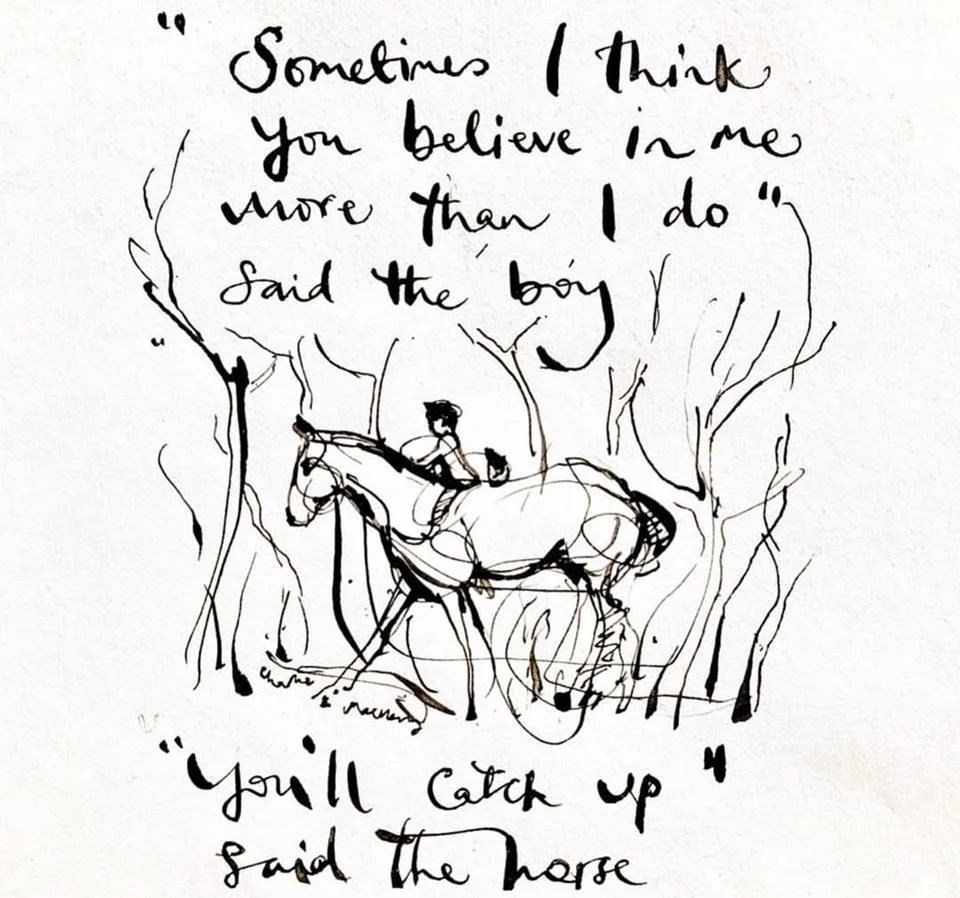 "Sometimes I think
you believe in me
more than I do"
said the boy
Charlie
Mackesy
"You'll catch up"
said the horse